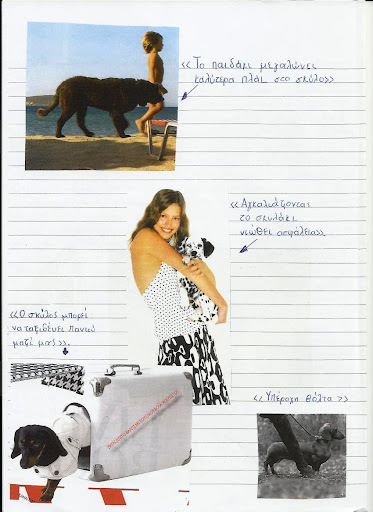 «Το παιδάκι μεγαλώνει
καλύτερα πλάι στο σκύλο»
«Αγκαλιάζοντας
το σκυλάκι
νιώθει ασφάλεια»
«Ο σκύλος μπορεί
να ταξιδεύει παντού
μαζί μας».
«Υπέροχη βόλτα»